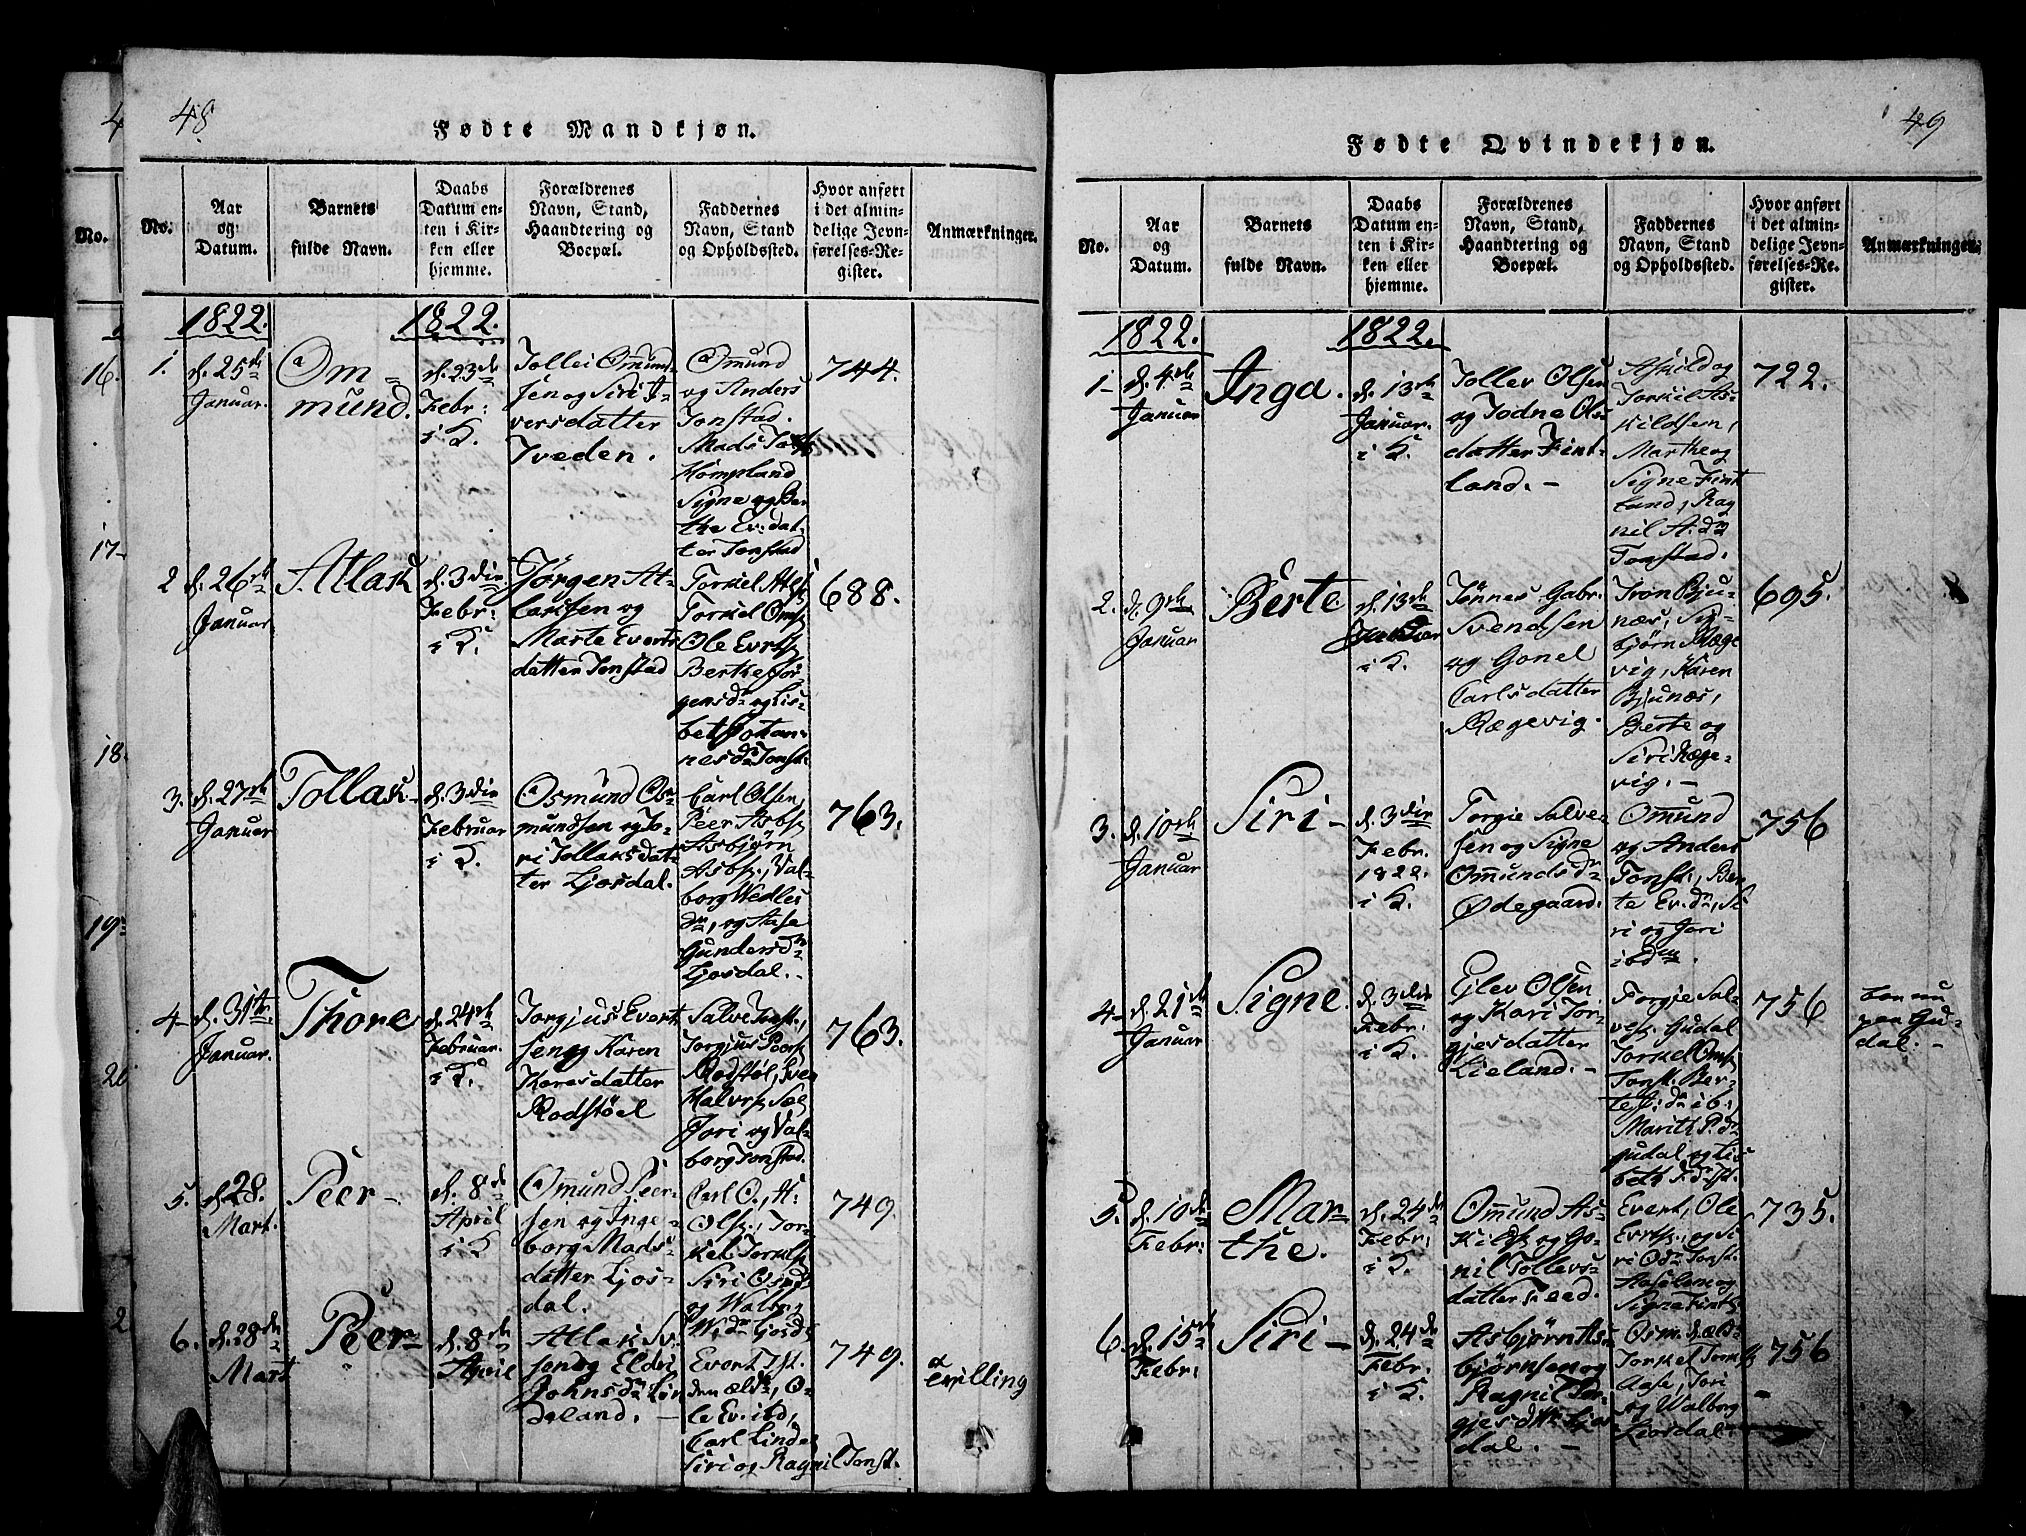 48
Fødte Mandkjøn.
No.
Aar
og
Datum.
Barnets
fulde Navn.
Daabs
Datum en-
ten i Kir-
ken eller
hjemme.
Forældrenes
Navn, Stand,
Haandtering og
Boepæl.
Faddernes
Navn, Stand
og Opholdssted.
Hvor anført
i det almin-
delige Jevn-
førelses-Re-
gister.
Anmærkninger.
1822.
1822.
1.
d. 25de
Januar.
Om=
mund.
d. 23de
Febr:
i K.
Tollei Omunds
sen og Siri I=
versdatter
Tveden.
Omund
og Anders
Tonstad.
Mads
Hompland
Signe og Ber
the Ev: dat-
ter Tonstad
744.
2
d. 26de
Januar
Atlak
d. 3die
Febr:
i K.
Jørgen At-
laksen og
Marte Everts
datter Tonstad
Torkel Atls:
Torkel Oms:
Ole Evrts:
Berthe Jør-
gensdr og Lis-
bet Johan-
nesdr Tonst:
688.
3.
d. 27de
Januar
Tollak-
d. 3die
Februar
i K.
Osmund Os-
mundsen og To-
ri Tollaksdat-
ter Ljosdal.
Carl Olsen,
Peer Asbs:
Asbjørn
Asbs:, Val-
borg Wedles
dr, og Aase
Gundersdr
Ljosdal.-
763.
4-
d. 31te
Januar.
Thore
d. 24de
Februar.
i K.
Torgjus Evert
sen og Karen
Koresdatter
Rodstøel
Salve Tonst:,
Torgjus Peers:
Rodstøl, Sven
Halvrs: Sæl
Jori og Val-
borg Tonstad.
763.
5.
d. 28.
Mart.
Peer-
d. 8de
April
i K
Omund Peer-
sen og Inge-
borg Mads-
datter Ljos-
dal.
Carl O., H:
Ols:, Tor-
kel Torkls:
Siri Osmd:
og Walbr:
W: dr Ljosd:
749.
6.
d. 28de
Mart
Peer-
d. 8de
April
Atlak
sen og Eldri
Johnsdr Lin
deland. -
Evert Tst:
den ældr, O-
le Ev. ibd,
Carl Linde
Siri og Ragnil Tonst.
749.
tvilling
49
Fødte Qvindekjøn.
No.
Aar
og
Datum.
Barnets
fulde Navn.
Daabs
Datum en-
ten i Kir-
ken eller
hjemme.
Forældrenes
Navn, Stand,
Haandtering og
Boepæl.
Faddernes
Navn, Stand
og Opholdssted.
Hvor anført
i det almin-
delige Jevn-
førelses-Re-
gister.
Anmærkninger.
1822.
1822.
1-
d. 4de
Januar
Inga.
d. 13de
Januar.
i K.
Tollev Olsen
og Todne Ols
datter Fint-
land. -
Askild og
Torkil As-
kildsen,
Marthe og
Signe Fint
land, Rag
nil A. dr
Tonstad.
722.
2.
d. 9de
Januar
Berte
d. 13de
Januar
i K.
Tønnes Gabr.
Svendsen
og Gonel
Carlsdatter
Rægevig.
Tron Bju-
næs, Sig-
bjørn Ræge
vig, Karen
Bjunæs,
Berte og
Siri Ræge-
vig. -
695.
3.
d. 10de
Januar
Siri -
d. 3die
Febr.
1822.
i K.
Torgie Salve
sen og Signe
Omundsdr
Ødegaard.
Omund
og Anders
Tonst:, Ber
te Ev. dr, Si
ri og Jori
ibdm.
756
4-
d. 21de
Januar
Signe.
d. 3die
Febr:
i K.
Ejlev Olsen
og Kari Tor-
gjesdatter
Lieland. -
Torgie Sal-
ves: Gudal
Torkel Oms:
Tonst. Ber-
te J: dr ib:,
Marith P. dr
Gudal og Lis
beth F. dr Tst.
756
boe nu
paa Gu-
dal. -
5.
d. 10de
Febr:
Mar-
the.
d. 24de
Febr:
i K.
Omund As-
kilds: og Go-
nil Tollevs-
datter Feed.
Evert, Ole
Evrts:, og Si
ri O. dr Tonst:
Aase Lan og
Signe Fintl:
735.
6.
d. 15de
Febr:
Siri -
d. 24de
Febr.
i K.
Asbjørn As-
bjørnsen og
Ragnil Tor-
gjesdtr Ljos
dal. -
Osm. d. æld:
Torkel Tork:
Aase, Tori
og Walborg
Liosdal.
756
-
16.
17-
18.
19-
20
2